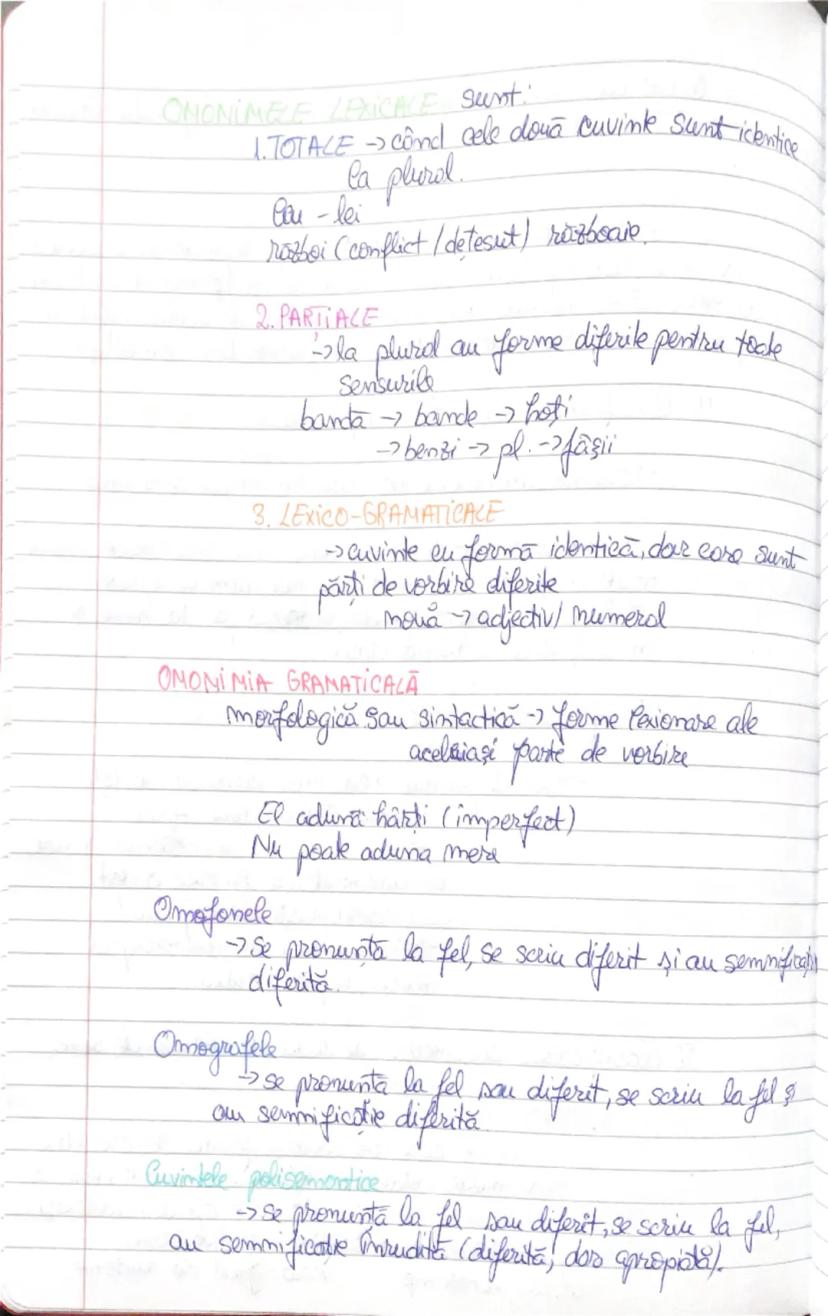 OMONIMELE LEXICALE sunt:
1. TOTALE → când cele două cuvinte sunt identice
la plural.
leu - lei
război (conflict / de țesut) războaie.
2. PARȚIALE
→ la plural au forme diferite pentru toate
sensurile
bandă → bande → hoți
→ benzi → pl. → fâșii
3. LEXICO-GRAMATICALE
→ cuvinte cu formă identică, dar care sunt
părți de vorbire diferite
nouă → adjectiv / numeral
OMONIMIA GRAMATICALĂ
morfologică sau sintactică → forme flexionare ale
aceleiași parte de vorbire
El adună hârti (imperfect)
Nu poate aduna mere
Omofonele
→ se pronunță la fel, se scriu diferit și au semnificații
diferită.
Omografele
→ se pronunță la fel sau diferit, se scriu la fel și
au semnificație diferită
Cuvintele polisemantice
→ se pronunță la fel sau diferit, se scriu la fel,
au semnificație înrudită (diferită, dar apropiată).